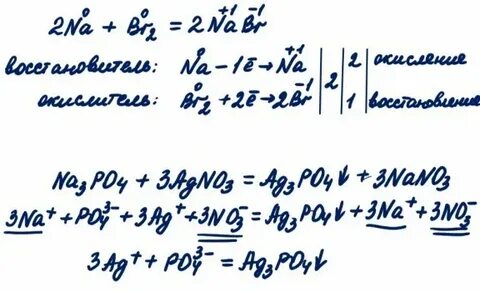 2Na⁰ + Br₂⁰ = 2Na⁺¹Br⁻¹
восстановитель: Na⁰ – 1ē → Na⁺¹ | 2 | 2 | окисление
окислитель: Br₂⁰ + 2ē → 2Br⁻¹ | 2 | 1 | восстановление
Na₃PO₄ + 3AgNO₃ = Ag₃PO₄↓ + 3NaNO₃
3Na⁺ + PO₄³⁻ + 3Ag⁺ + 3NO₃⁻ = Ag₃PO₄↓ + 3Na⁺ + 3NO₃⁻
3Ag⁺ + PO₄³⁻ = Ag₃PO₄↓